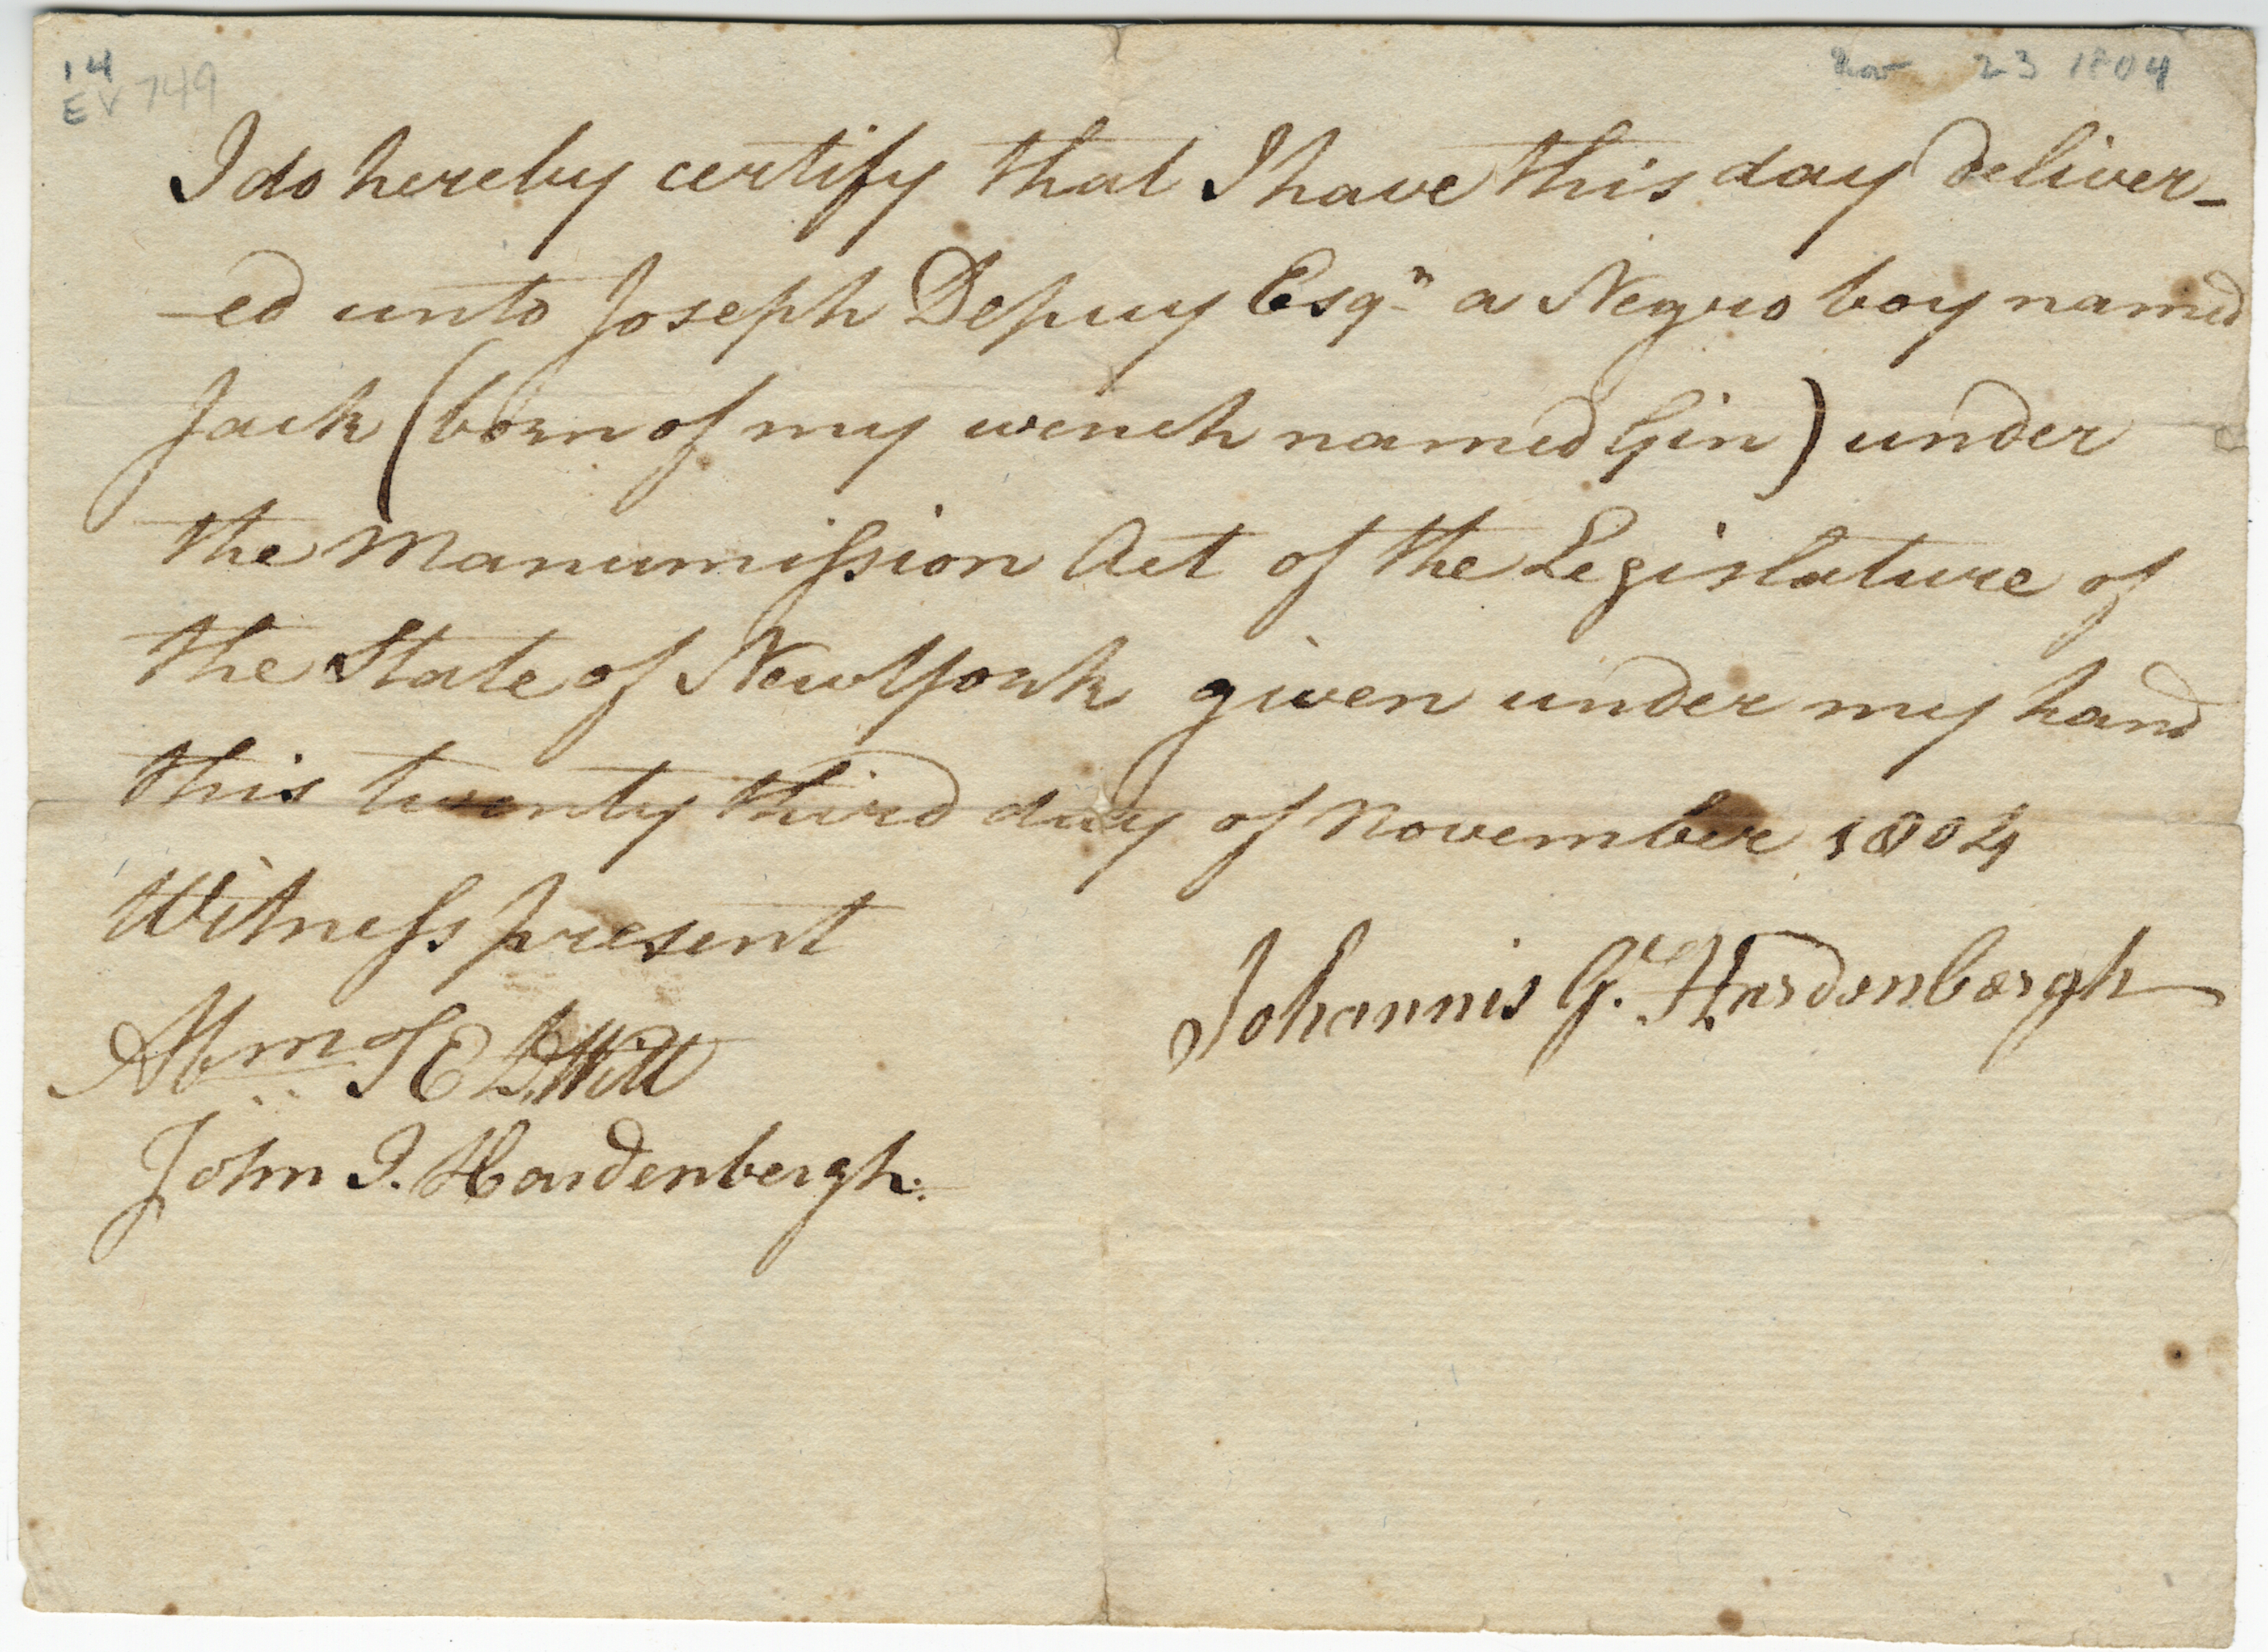 14
EV 749
Nov 23 1804
I do hereby certify that I have this day deliver-
-ed unto Joseph Depuy Esqr a Negro boy named
Jack (born of my wench named Gin) under
the Manumission Act of the Legislature of
the State of NewYork given under my hand
this twenty third day of November 1804
Witness present
Johannis G. Hardenbergh
Abm DWitt
John J. Hardenbergh.